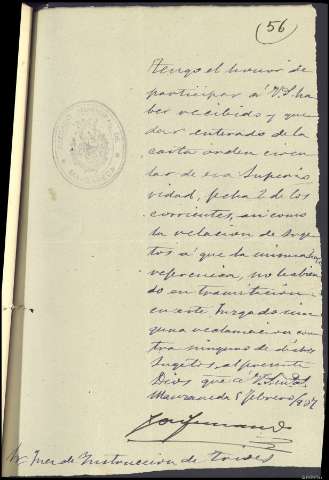 (56)
Tengo el honor de
participar á V.S. ha
ber recibido y que
dar enterado de la
carta orden circu
lar de esa Superio
ridad, fecha 2 de los
corrientes, asi como
la relacion de suge
tos á que la misma hace
referencia, no habien
do en tramitacion
en este Juzgado nin
guna reclamacion con
tra ninguno de dichos
sugetos, al presente
Dios gue á V.S. m. a.
Manzaneda 5 febrero
Sr. Juez de Instruccion de Trives